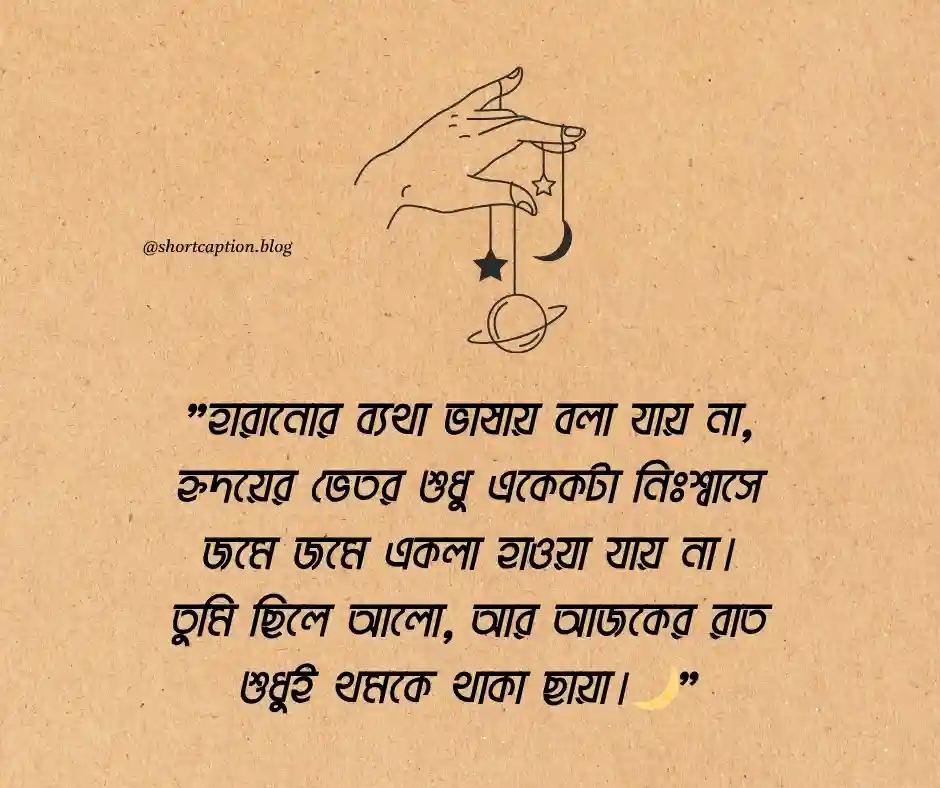 @shortcaption.blog
”হারানোর ব্যথা ভাষায় বলা যায় না,
হৃদয়ের ভেতর শুধু একেকটা নিঃশ্বাসে
জমে জমে একলা হাওয়া যায় না।
তুমি ছিলে আলো, আর আজকের রাত
শুধুই থমকে থাকা ছায়া।🌙”